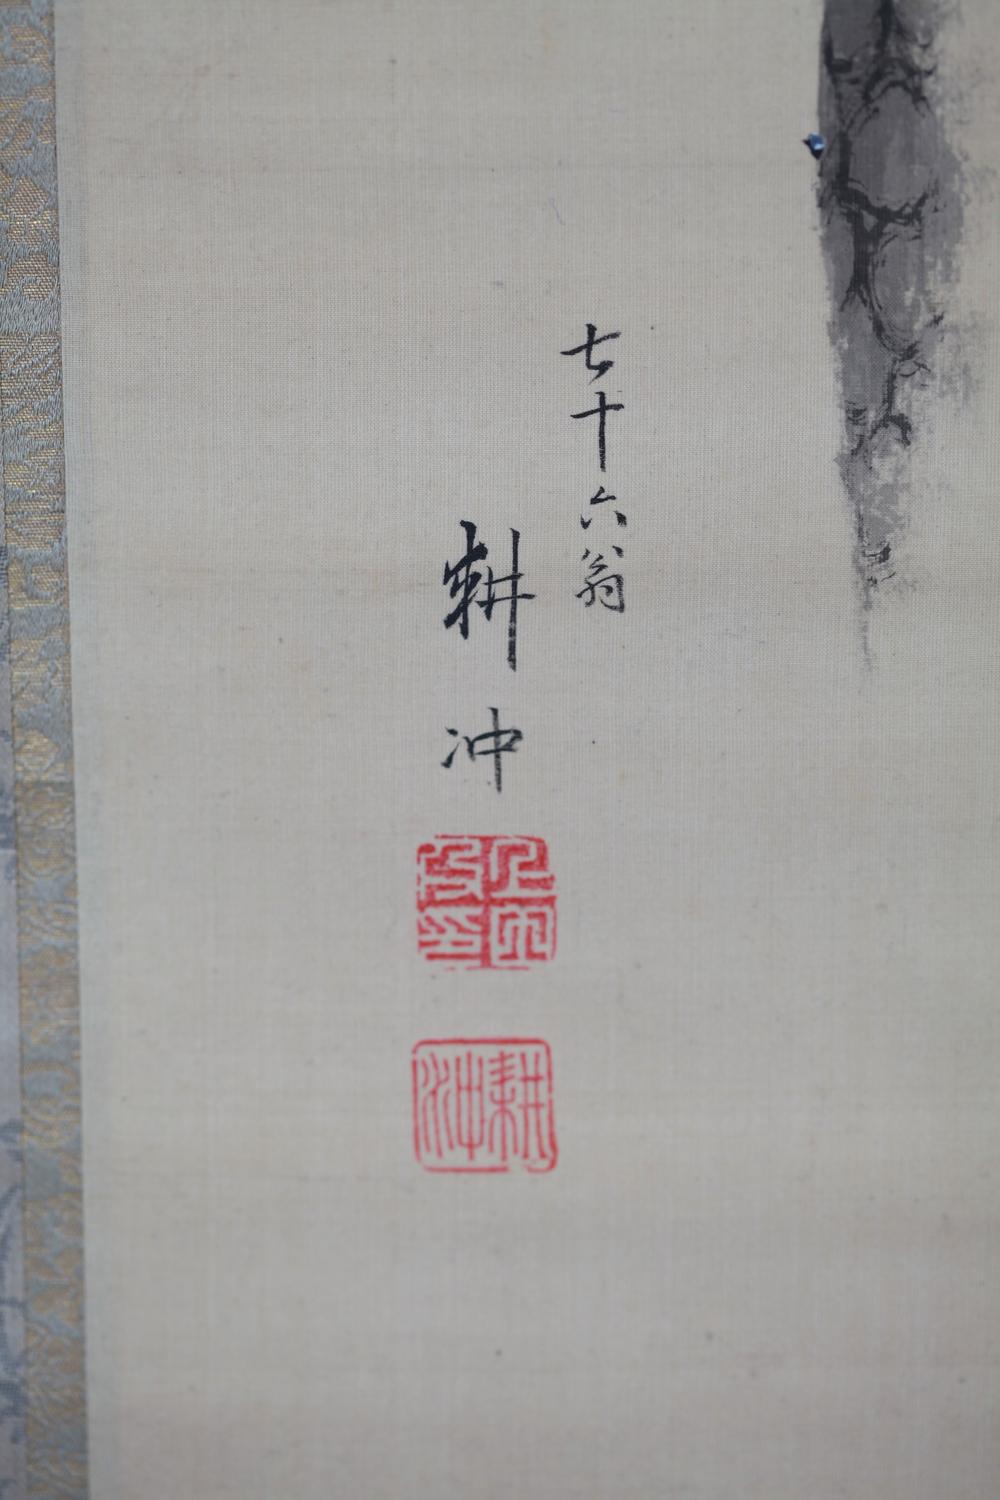 七十六翁
耕冲
耕冲